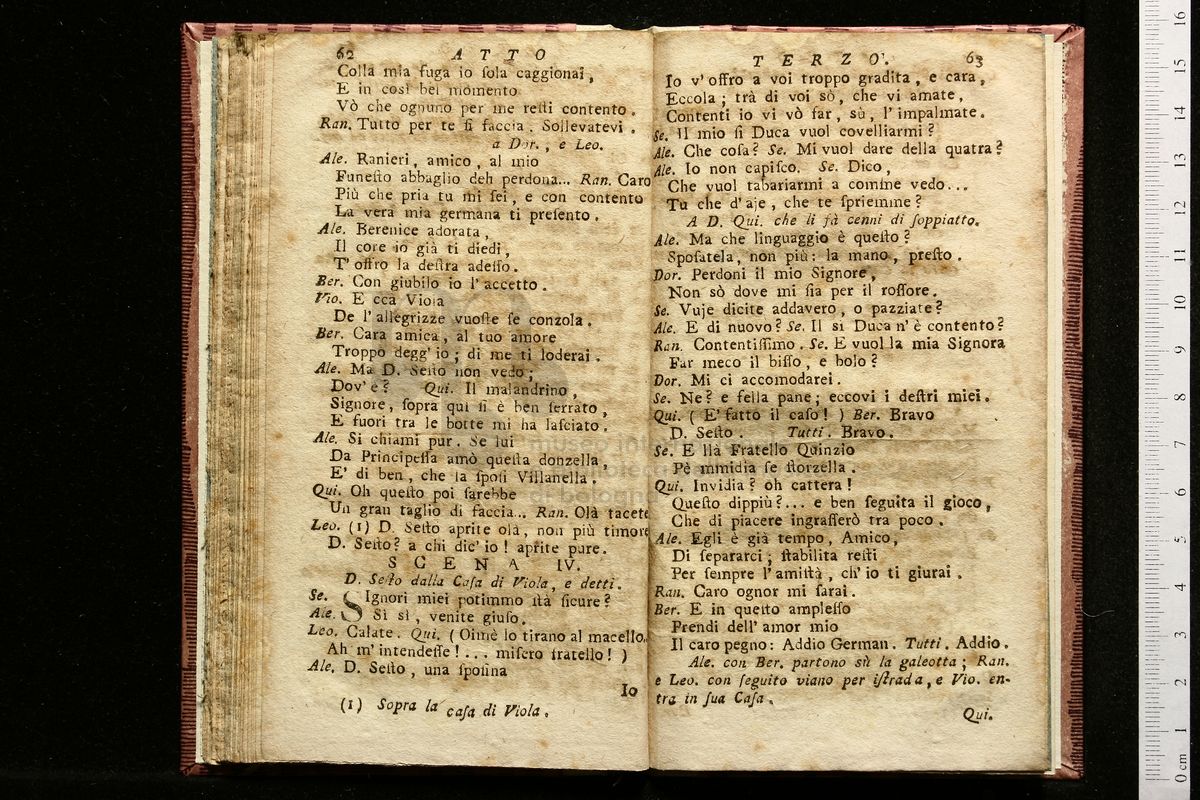 62 ATTO
Colla mia fuga io ſola caggionai,
E in così bel momento
Vò che ognuno per me reſti contento.
Ran. Tutto per te ſi faccia. Sollevatevi.
a Dor., e Leo.
Ale. Ranieri, amico, al mio
Funeſto abbaglio deh perdona... Ran. Caro
Più che pria tu mi ſei, e con contento
La vera mia germana ti preſento.
Ale. Berenice adorata,
Il core io già ti diedi,
T'offro la deſtra adeſſo.
Ber. Con giubilo io l'accetto.
Vio. E cca Viola
De l'allegrizze vuoſte ſe conzola.
Ber. Cara amica, al tuo amore
Troppo degg'io; di me ti loderai.
Ale. Ma D. Seſto non vedo;
Dov'è? Qui. Il malandrino,
Signore, ſopra qui ſi è ben ſerrato,
E fuori tra le botte mi ha laſciato.
Ale. Si chiami pur. Se lui
Da Principeſſa amò queſta donzella,
E' di ben, che la ſpoſi Villanella.
Qui. Oh queſto poi ſarebbe
Un gran taglio di faccia... Ran. Olà tacete
Leo. (1) D. Seſto aprite olà, non più timore
D. Seſto? a chi dic'io! aprite pure.
SCENA IV.
D. Seſto dalla Caſa di Viola, e detti.
Se. SIgnori miei potimmo ſtà ſicure?
Ale. Si sì, venite giuſo.
Leo. Calate. Qui. (Oimè lo tirano al macello.
Ah m'intendeſſe!... miſero fratello!)
Ale. D. Seſto, una ſpoſina
Io
(1) Sopra la caſa di Viola.
TERZO. 63
Io v'offro a voi troppo gradita, e cara,
Eccola; trà di voi sò, che vi amate,
Contenti io vi vò far, sù, l'impalmate.
Se. Il mio ſi Duca vuol covelliarmi?
Ale. Che coſa? Se. Mi vuol dare della quatra?
Ale. Io non capiſco. Se. Dico,
Che vuol tabariarmi a comme vedo...
Tu che d'aje, che te ſpriemme?
A D. Qui. che li fà cenni di ſoppiatto.
Ale. Ma che linguaggio è queſto?
Spoſatela, non più: la mano, preſto.
Dor. Perdoni il mio Signore,
Non sò dove mi ſia per il roſſore.
Se. Vuje dicite addavero, o pazziate?
Ale. E di nuovo? Se. Il si Duca n'è contento?
Ran. Contentiſſimo. Se. E vuol la mia Signora
Far meco il biſſo, e bolo?
Dor. Mi ci accomodarei.
Se. Ne? e feſſa pane; eccovi i deſtri miei.
Qui. (E' fatto il caſo!) Ber. Bravo
D. Seſto. Tutti. Bravo.
Se. E llà Fratello Quinzio
Pè mmidia ſe ſtorzella.
Qui. Invidia? oh cattera!
Queſto dippiù?... e ben ſeguita il gioco,
Che di piacere ingraſſerò tra poco.
Ale. Egli è già tempo, Amico,
Di ſepararci; ſtabilita reſti
Per ſempre l'amiſtà, ch'io ti giurai.
Ran. Caro ognor mi ſarai.
Ber. E in queſto ampleſſo
Prendi dell'amor mio
Il caro pegno: Addio German. Tutti. Addio.
Ale. con Ber. partono sù la galeotta; Ran.
e Leo. con ſeguito viano per iſtrada, e Vio. en-
tra in ſua Caſa.
Qui.